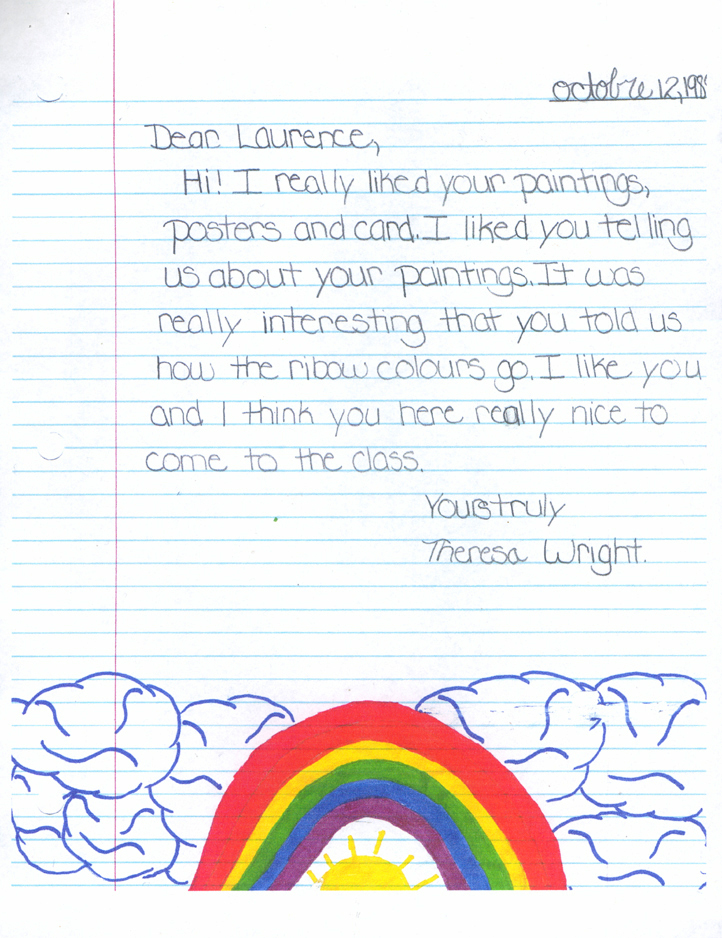 octobre 12, 198
Dear Laurence,
Hi! I really liked your paintings,
posters and card. I liked you telling
us about your paintings. It was
really interesting that you told us
how the ribow colours go. I like you
and I think you here really nice to
come to the class.
Yours truly
Theresa Wright.